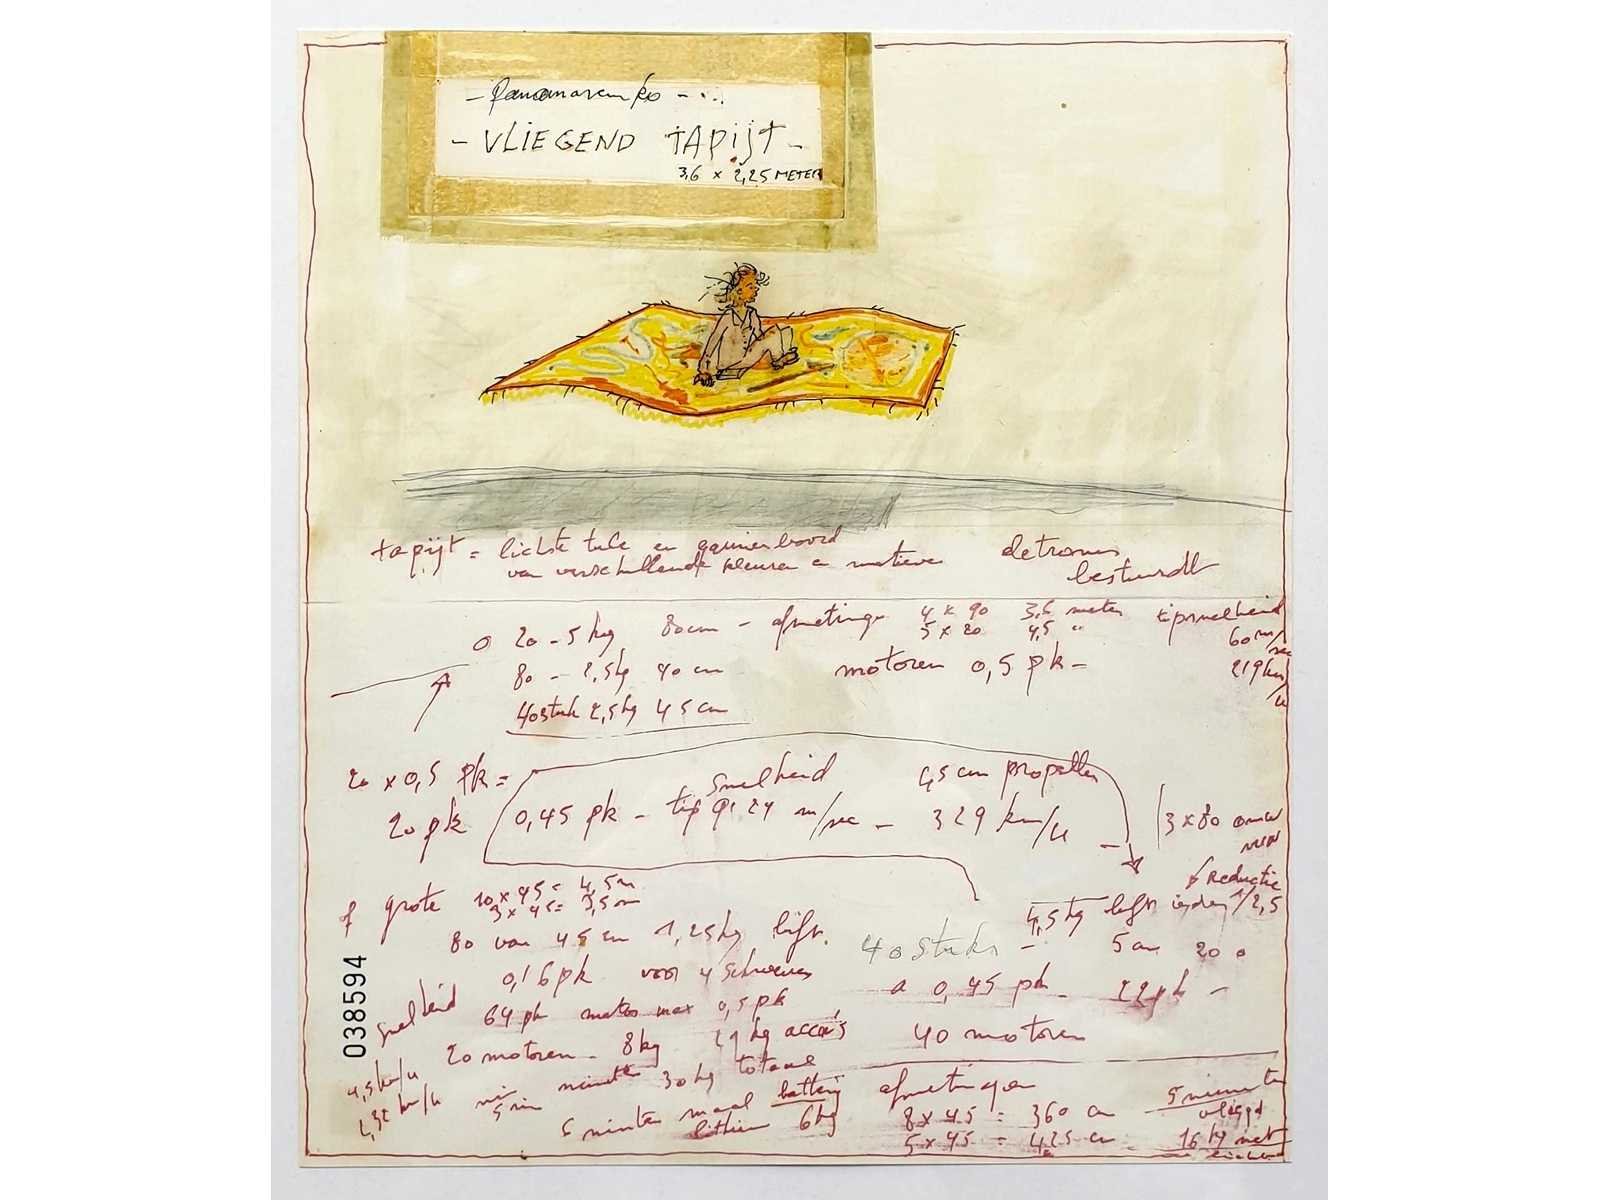 - Panamarenko - ...
- VLIEGEND TAPIJT -
3,6 x 2,25 METER
tapijt = lichste tule en
van verschillende kleuren en motieven
bestuurdt
20 - 5 kg 80cm - afmetingen 4 x 90 3,6 meter tipsnelheid
5 x 20 4,5 " 60 m/sec
80 - 2,5 kg 40 cm motoren 0,5 pk - 219 km/u
40 stuk 2,5 kg 45 cm
20 x 0,5 pk =
snelheid 4,5 cm propeller
20 pk 0,45 pk - tip 91,24 m/sec - 329 km/u
3 x 80
of grote 10 x 45 = 4,5 m
3 x 45 = 3,5 m
Reductie
4,5 kg lift iedere 1/2,5
80 van 45 cm 1,25 kg lift.
40 stuks - 5 cm 20
0,16 pk voor 4 schroeven
a 0,45 pk - 22 pk -
snelheid
64 pk motor max 0,5 pk
20 motoren - 8 kg 21 kg accu's
40 motoren
4,5 km/u
5 min minuten 30 kg totaal
2,32 km/u
5 minuten maal battery 6 kg
lithium
afmetingen
8 x 45 = 360 cm
5 x 45 = 425 cm
5 minuten
16 kg met
038594